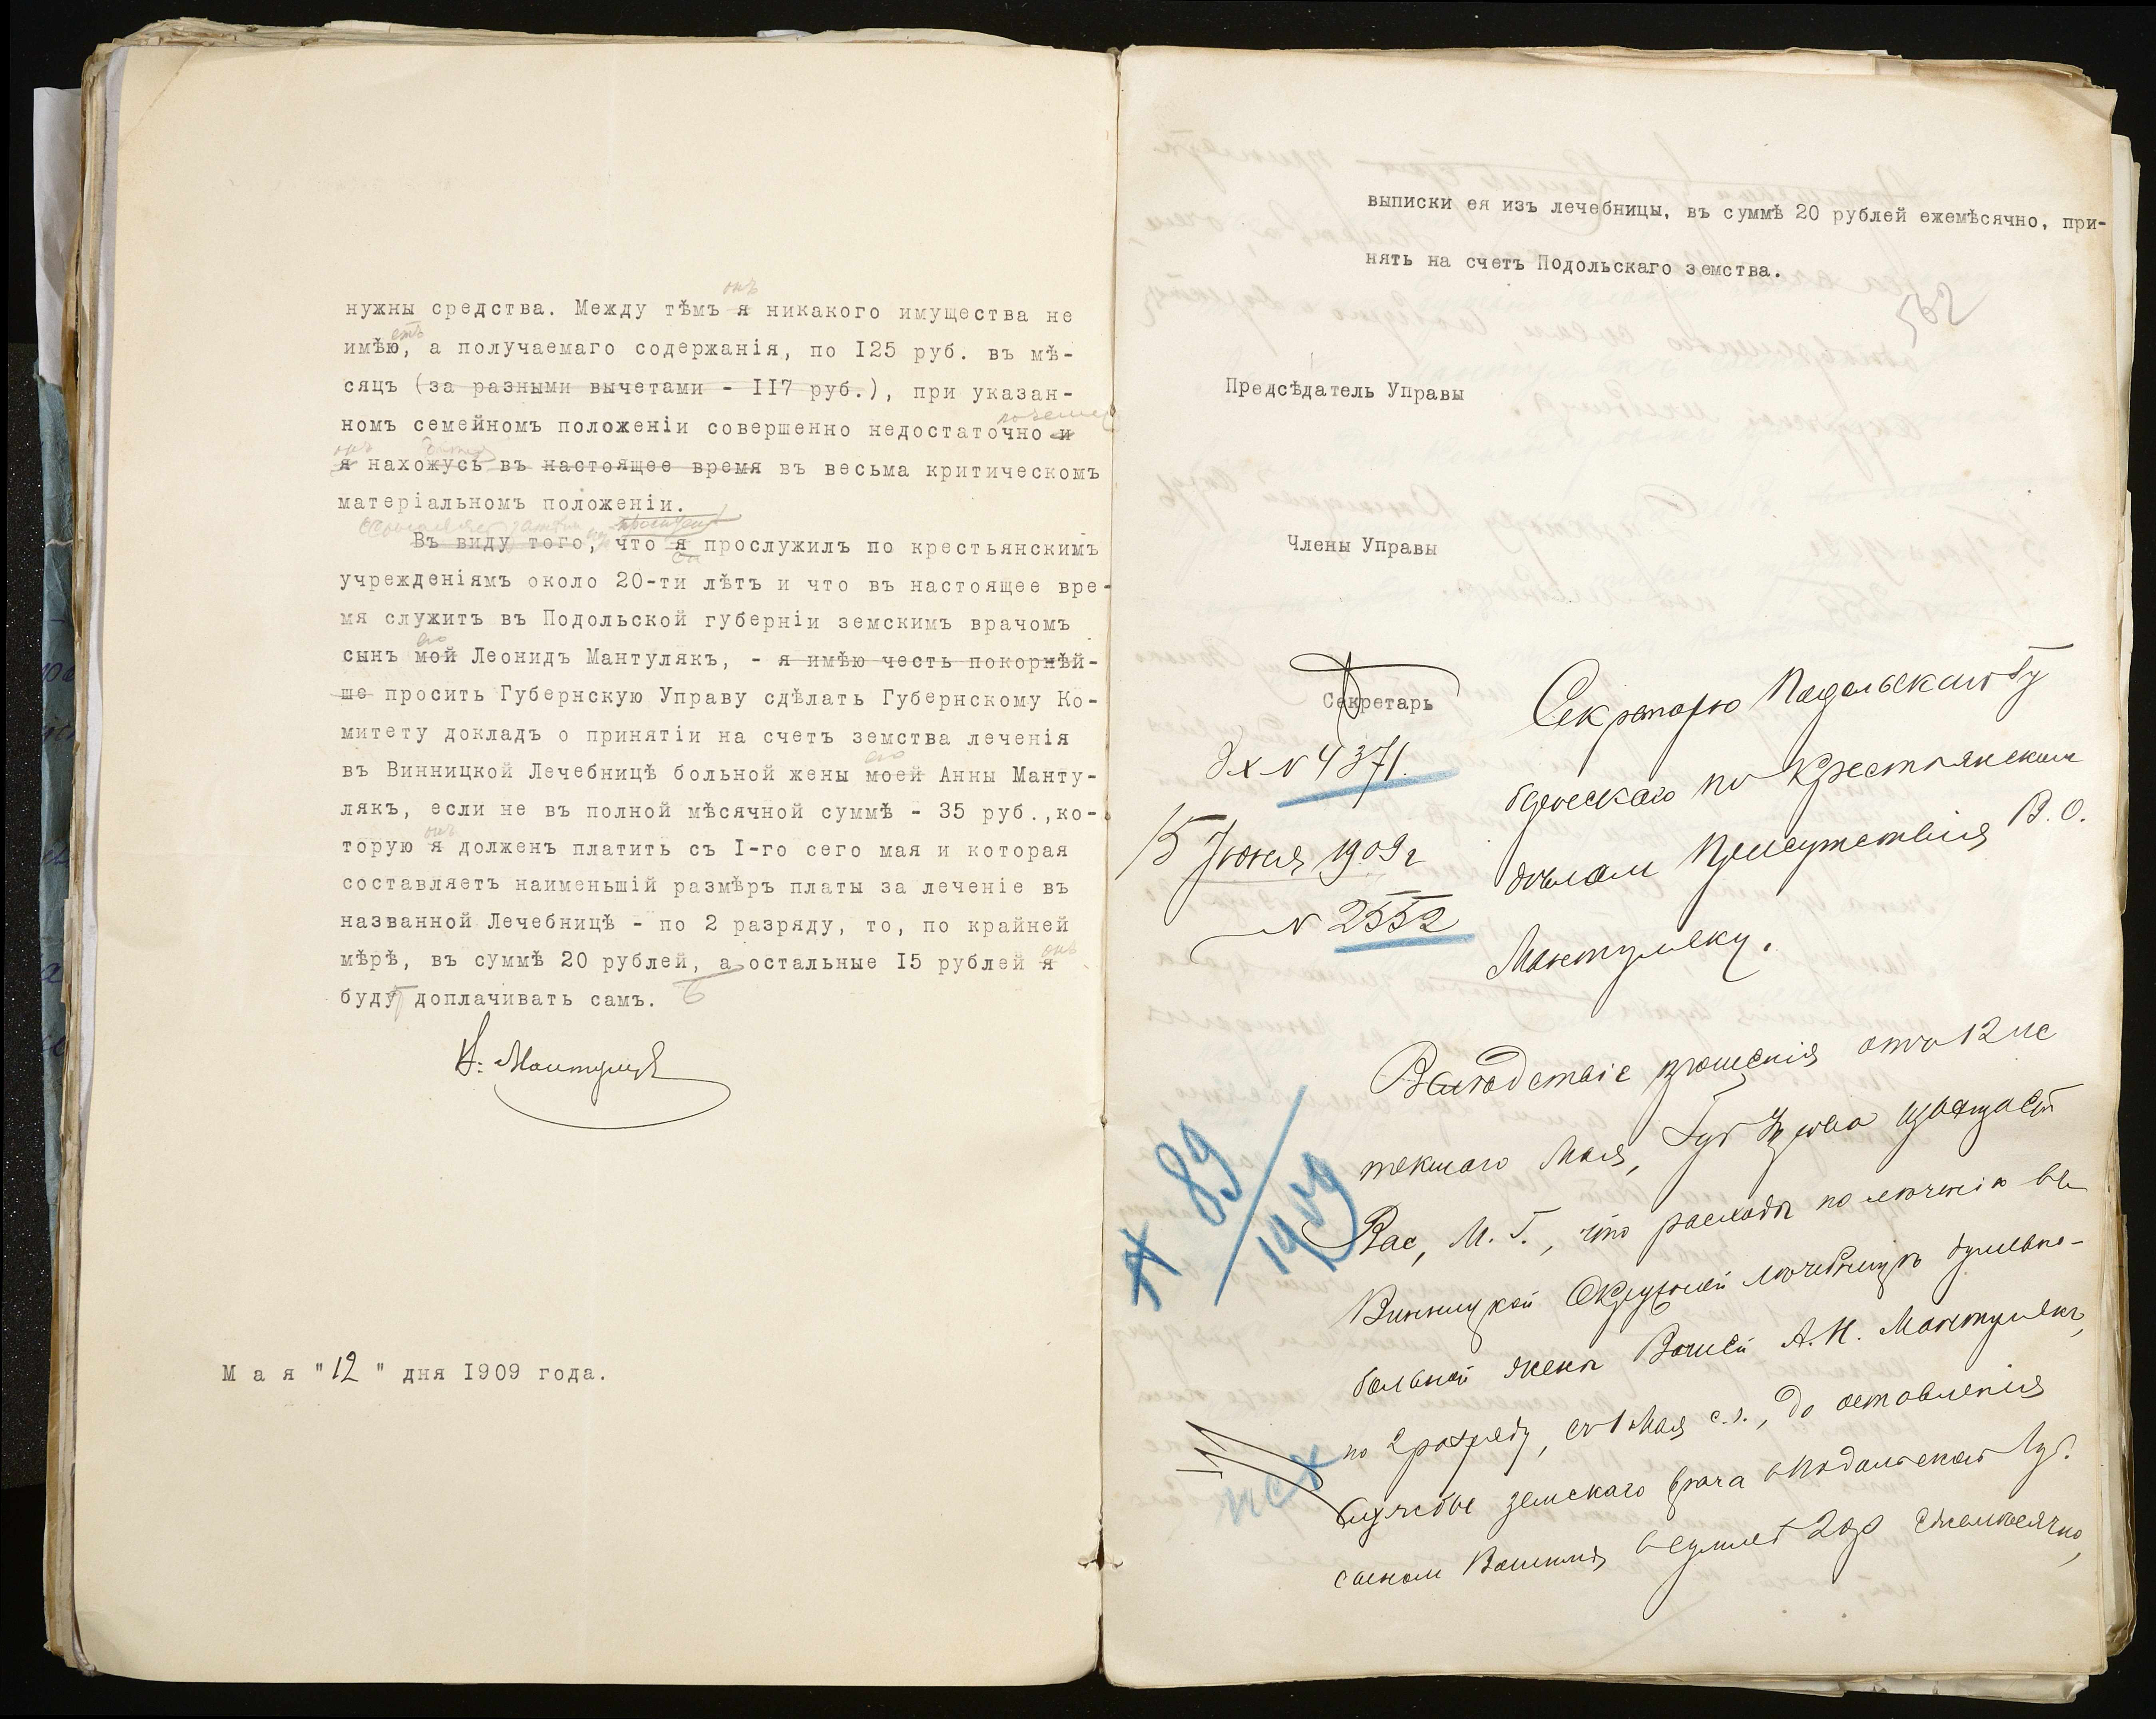 нужны средства. Между тѣмъ я никакого имущества не
он
имѣю, а получаемаго содержанія, по I25 руб. въ мѣ-
етъ
сяцъ (за разными вычетами - II7 руб.), при указан-
номъ семейномъ положеніи совершенно недостаточно и
я нахожусь въ настоящее время въ весьма критическомъ
матеріальномъ положеніи.
Въ виду того, что я прослужилъ по крестьянскимъ
учрежденіямъ около 20-ти лѣтъ и что въ настоящее вре-
мя служитъ въ Подольской губерніи земскимъ врачомъ
сынъ мой Леонидъ Мантулякъ, - я имѣю честь покорнѣй-
его
ше просить Губернскую Управу сдѣлать Губернскому Ко-
митету докладъ о принятіи на счетъ земства леченія
въ Винницкой Лечебницѣ больной жены моей Анны Манту-
его
лякъ, если не въ полной мѣсячной суммѣ - 35 руб.,ко-
торую я долженъ платить съ I-го сего мая и которая
онъ
составляетъ наименьшій размѣръ платы за леченіе въ
названной Лечебницѣ - по 2 разряду, то, по крайней
мѣрѣ, въ суммѣ 20 рублей, а остальные I5 рублей я
онъ
буду доплачивать самъ.
Мантулякъ
Мая "12" дня I909 года.
выписки ея изъ лечебницы, въ суммѣ 20 рублей ежемѣсячно, при-
нять на счетъ Подольскаго земства.
562
Предсѣдатель Управы
Члены Управы
Секретарь
Вх № 4371.
15 Июня 1909 г
№ 2552
Секретарю Подольскаго Гу
бернскаго по Крестьянским
дѣлам Присутствія В. О.
Мантуляку.
Вслѣдствіе прошенія отъ 12 ис
текшаго Мая, Губ Управа извѣщает
Вас, М. Г., что расходы по леченію въ
Винницкой Окружной лечебницѣ душевно-
больной жены Вашей А. Н. Мантулякъ,
по 2 разряду, съ 1 Мая с. г., до оставленія
службы земскаго врача в Подольской Губ.
сыном Вашимъ в суммѣ 20 р ежемѣсячно,
89
1909
исх